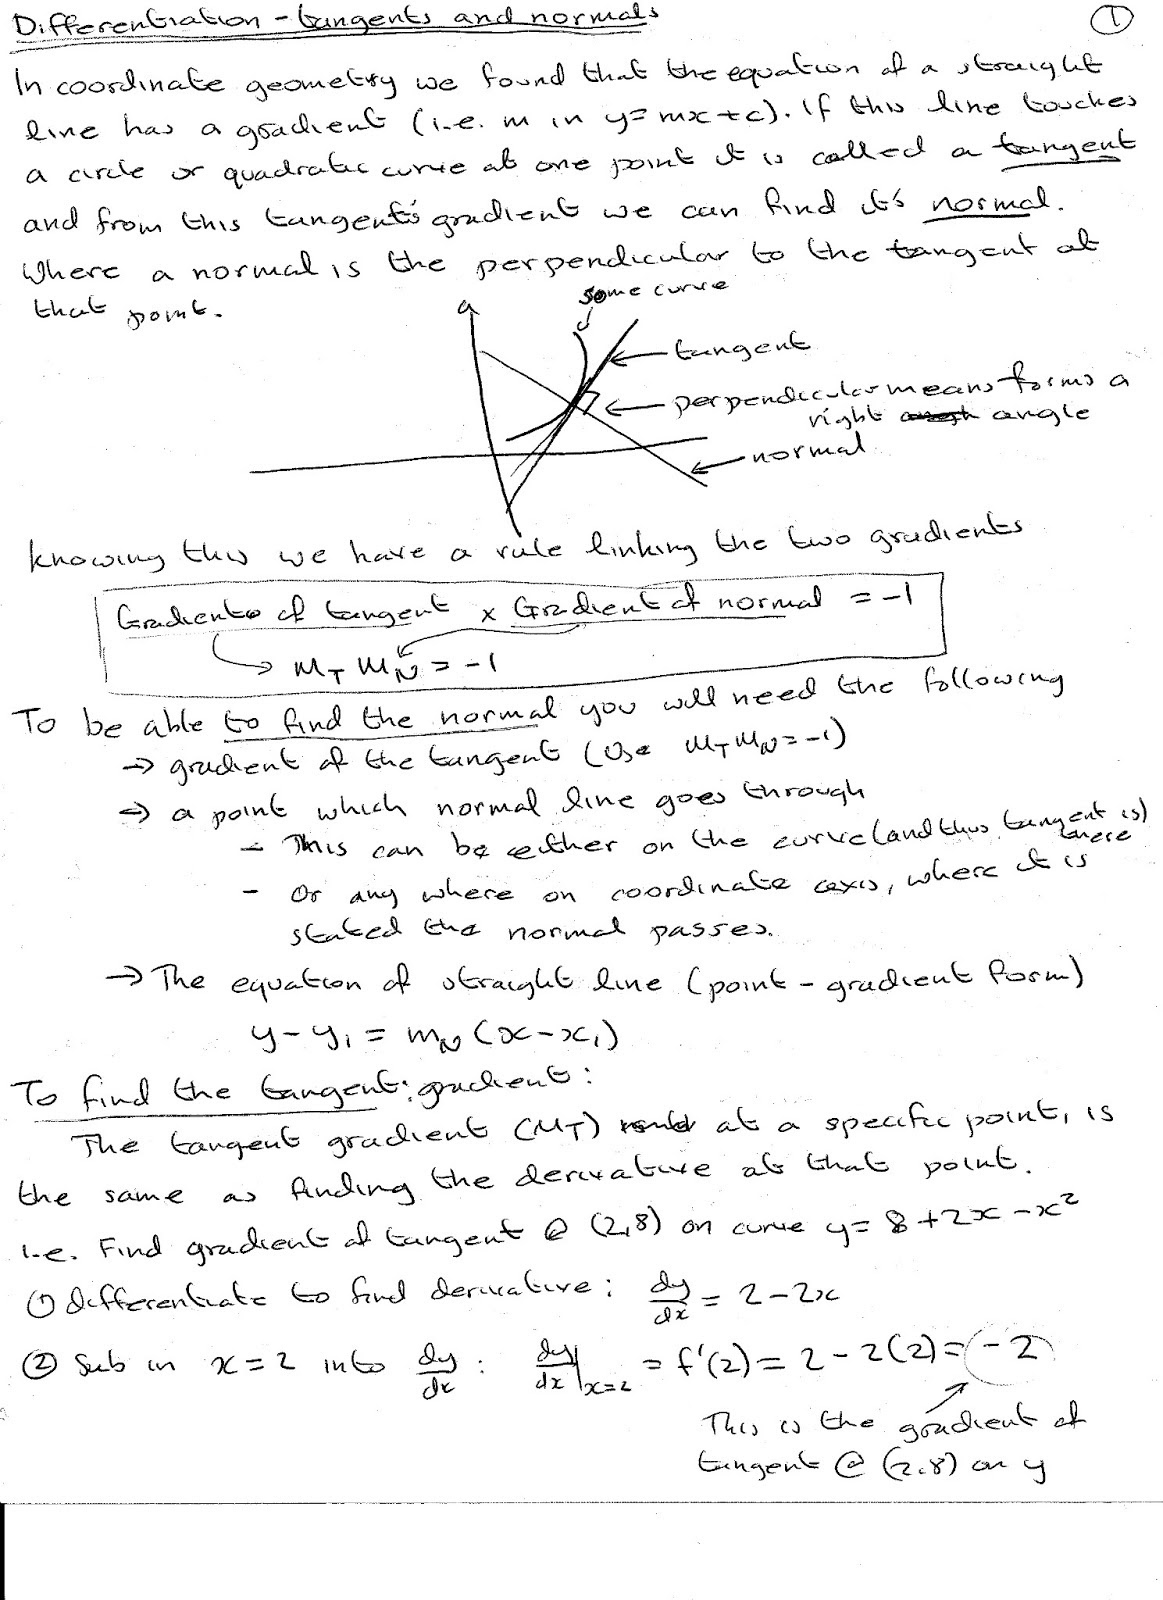 Differentiation - tangents and normals
1
In coordinate geometry we found that the equation of a straight
line has a gradient (i.e. m in y=mx+c). If this line touches
a circle or quadratic curve at one point it is called a tangent
and from this tangent's gradient we can find it's normal.
Where a normal is the perpendicular to the tangent at
that point.
some curve
tangent
perpendicular means forms a
right angle
normal
knowing this we have a rule linking the two gradients
Gradient of tangent x Gradient of normal = -1
M_T M_N = -1
To be able to find the normal you will need the following
→ gradient of the tangent (Use M_T M_N = -1)
→ a point which normal line goes through
- This can be either on the curve (and thus tangent is)
there
- Or any where on coordinate axis, where it is
stated the normal passes.
→ The equation of straight line (point - gradient form)
y - y₁ = m_N (x - x₁)
To find the tangent: gradient:
The tangent gradient (M_T) at a specific point, is
the same as finding the derivative at that point.
i.e. Find gradient of tangent @ (2,8) on curve y = 8 + 2x - x²
① differentiate to find derivative: dy/dx = 2 - 2x
② Sub in x = 2 into dy/dx : dy/dx|x=2 = f'(2) = 2 - 2(2) = -2
This is the gradient of
tangent @ (2,8) on y